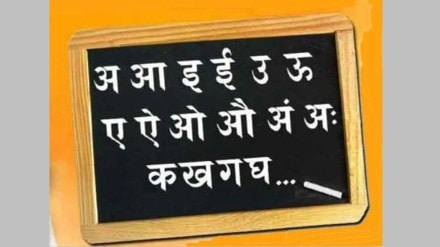 अ आ इ ई उ ऊ
ए ऐ ओ औ अं अः
क ख ग घ...